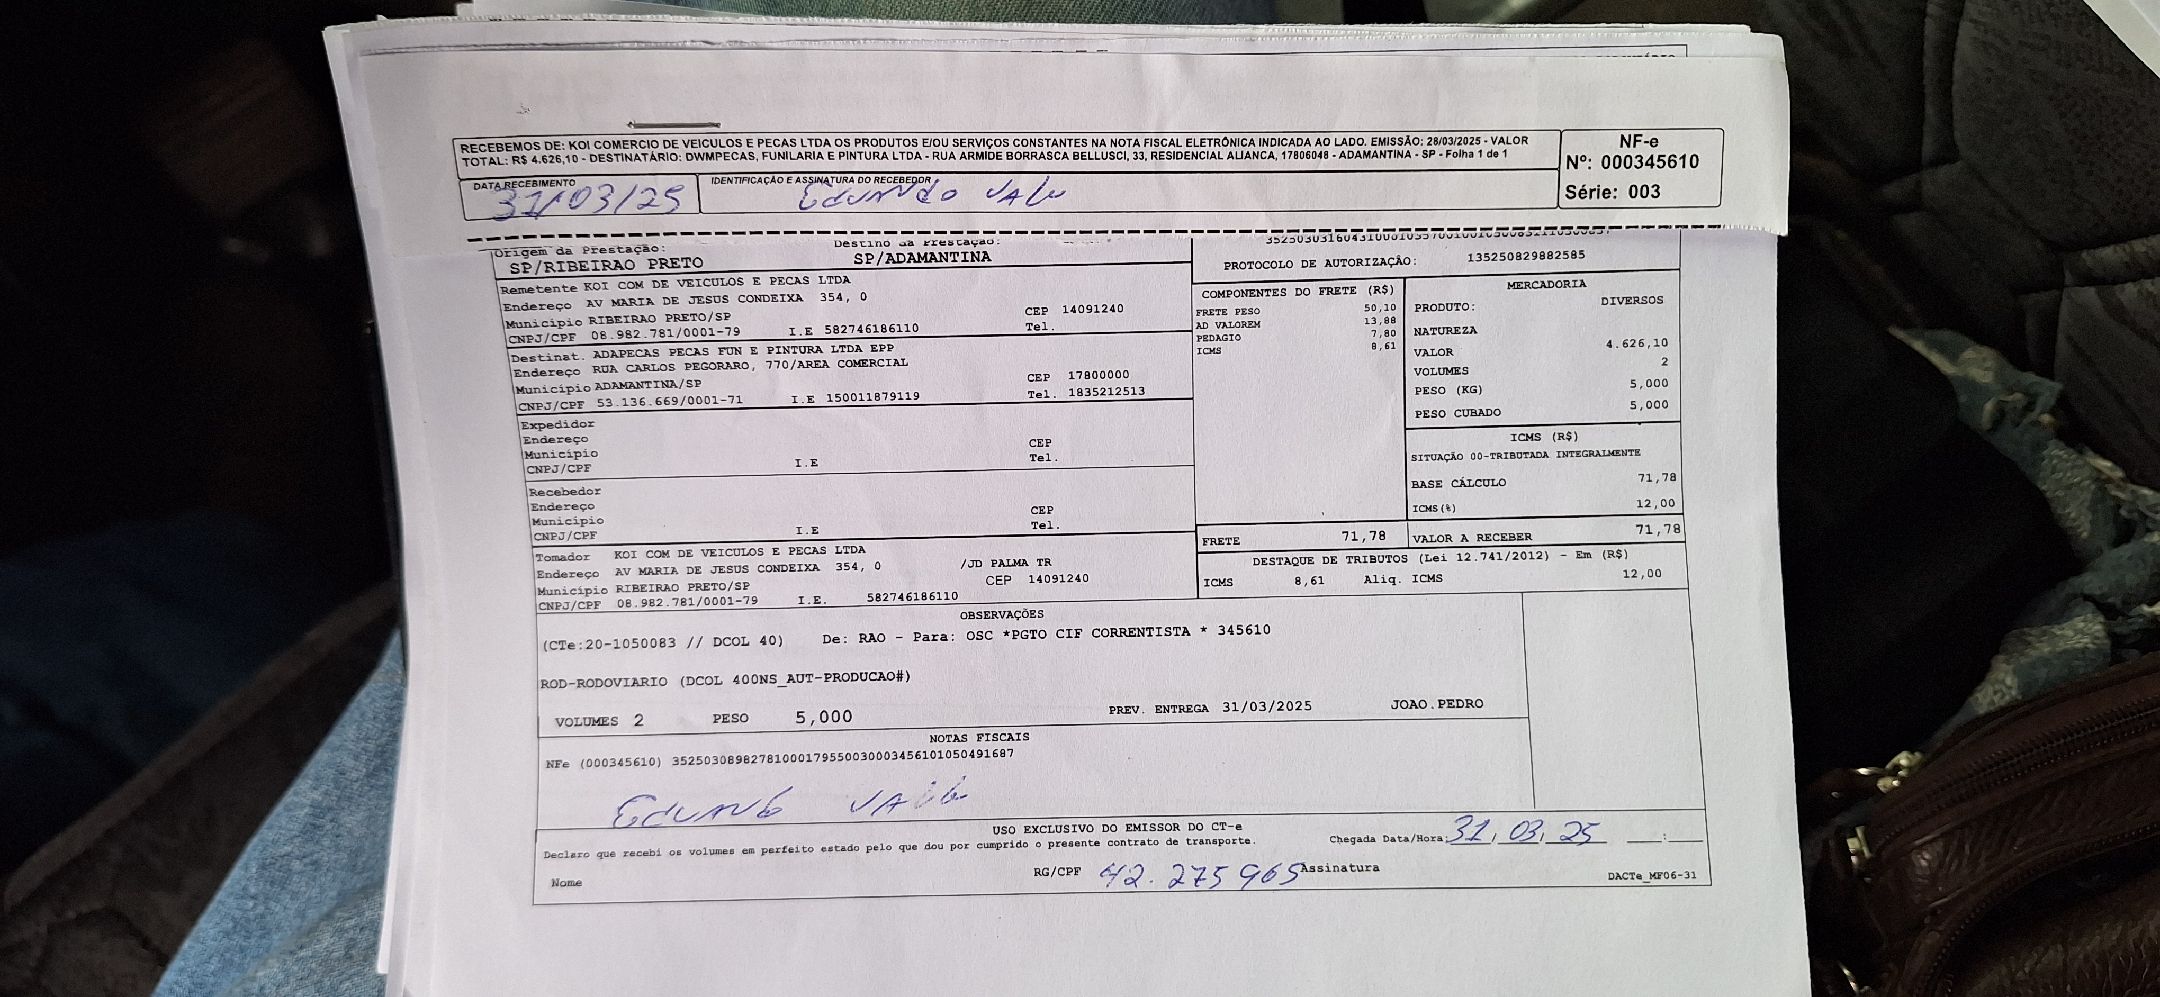 RECEBEMOS DE: KOI COMERCIO DE VEICULOS E PECAS LTDA OS PRODUTOS E/OU SERVIÇOS CONSTANTES NA NOTA FISCAL ELETRÔNICA INDICADA AO LADO. EMISSÃO: 28/03/2025 - VALOR
TOTAL: R$ 4.626,10 - DESTINATÁRIO: DWMPECAS, FUNILARIA E PINTURA LTDA - RUA ARMIDE BORRASCA BELLUSCI, 33, RESIDENCIAL ALIANCA, 17806048 - ADAMANTINA - SP - Folha 1 de 1
NF-e
Nº: 000345610
Série: 003
DATA RECEBIMENTO
31/03/25
IDENTIFICAÇÃO E ASSINATURA DO RECEBEDOR
Eduardo
Origem da Prestação:
Destino da Prestação:
SP/RIBEIRAO PRETO
SP/ADAMANTINA
PROTOCOLO DE AUTORIZAÇÃO: 135250829882585
Remetente KOI COM DE VEICULOS E PECAS LTDA
Endereço AV MARIA DE JESUS CONDEIXA 354, 0
Município RIBEIRAO PRETO/SP CEP 14091240
CNPJ/CPF 08.982.781/0001-79 I.E 582746186110 Tel.
Destinat. ADAPECAS PECAS FUN E PINTURA LTDA EPP
Endereço RUA CARLOS PEGORARO, 770/AREA COMERCIAL
Município ADAMANTINA/SP CEP 17800000
CNPJ/CPF 53.136.669/0001-71 I.E 150011879119 Tel. 1835212513
Expedidor
Endereço
Município CEP
CNPJ/CPF I.E Tel.
Recebedor
Endereço
Município CEP
CNPJ/CPF I.E Tel.
Tomador KOI COM DE VEICULOS E PECAS LTDA
Endereço AV MARIA DE JESUS CONDEIXA 354, 0 /JD PALMA TR
Município RIBEIRAO PRETO/SP CEP 14091240
CNPJ/CPF 08.982.781/0001-79 I.E. 582746186110
COMPONENTES DO FRETE (R$)
FRETE PESO 50,10
AD VALOREM 13,88
PEDAGIO 7,80
ICMS 8,61
MERCADORIA
PRODUTO: DIVERSOS
NATUREZA
VALOR 4.626,10
VOLUMES 2
PESO (KG) 5,000
PESO CUBADO 5,000
ICMS (R$)
SITUAÇÃO 00-TRIBUTADA INTEGRALMENTE
BASE CÁLCULO 71,78
ICMS(%) 12,00
FRETE 71,78
VALOR A RECEBER 71,78
DESTAQUE DE TRIBUTOS (Lei 12.741/2012) - Em (R$)
ICMS 8,61 Aliq. ICMS 12,00
OBSERVAÇÕES
(CTe:20-1050083 // DCOL 40) De: RAO - Para: OSC *PGTO CIF CORRENTISTA * 345610
ROD-RODOVIARIO (DCOL 400NS_AUT-PRODUCAO#)
VOLUMES 2 PESO 5,000 PREV. ENTREGA 31/03/2025 JOAO.PEDRO
NOTAS FISCAIS
NFe (000345610) 35250308982781000179550030003456101050491687
USO EXCLUSIVO DO EMISSOR DO CT-e
Declaro que recebi os volumes em perfeito estado pelo que dou por cumprido o presente contrato de transporte.
Chegada Data/Hora: 31, 03, 25 __:__
Nome
RG/CPF 42.275965 Assinatura
DACTe_MF06-31